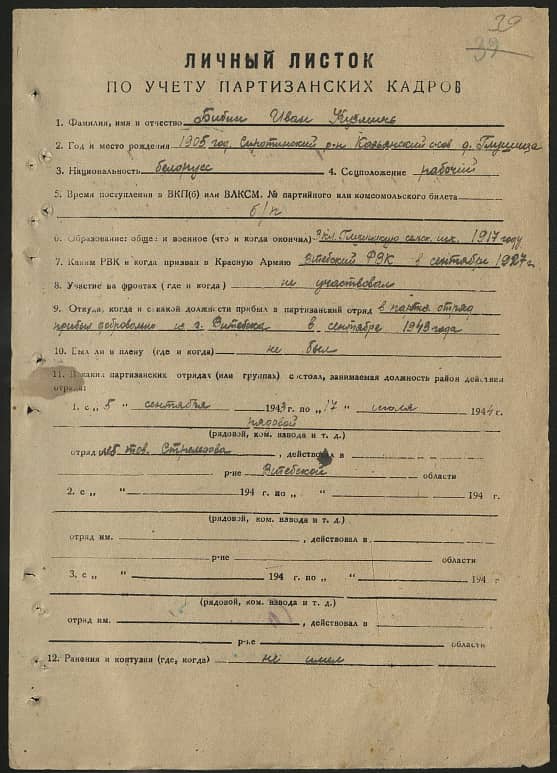 39
39
ЛИЧНЫЙ ЛИСТОК
ПО УЧЕТУ ПАРТИЗАНСКИХ КАДРОВ
1. Фамилия, имя и отчество Бибин Иван
2. Год и место рождения 1905 год Сиротинский р-н Козьянский с/сов д.
3. Национальность белорусс 4. Соцположение рабочий
5. Время поступления в ВКП(б) или ВЛКСМ. № партийного или комсомольского билета
б/п
6. Образование: общее и военное (что и когда окончил) 3 кл. сельск. шк. 1917 году
7. Каким РВК и когда призван в Красную Армию Витебский РВК в сентябре 1927 г.
8. Участие на фронтах (где и когда) не участвовал
9. Откуда, когда и с какой должности прибыл в партизанский отряд в партиз. отряд
прибыл добровольно из г. Витебска в сентябре 1943 года
10. Был ли в плену (где и когда) не был
11. В каких партизанских отрядах (или группах) состоял, занимаемая должность район действия
отряда:
1. с „ 5 “ сентября 1943 г. по „ 17 “ июля 1944 г.
рядовой
(рядовой, ком. взвода и т. д.)
отряд тов. , действовал в
р-не Витебской области
2. с „ “ 194 г. по „ “ 194 г.
(рядовой, ком. взвода и т. д.)
отряд им. , действовал в
р-не области
3. с „ “ 194 г. по „ “ 194 г
(рядовой, ком. взвода и т. д.)
отряд им. , действовал в
р-не области
12. Ранения и контузии (где, когда) не имел